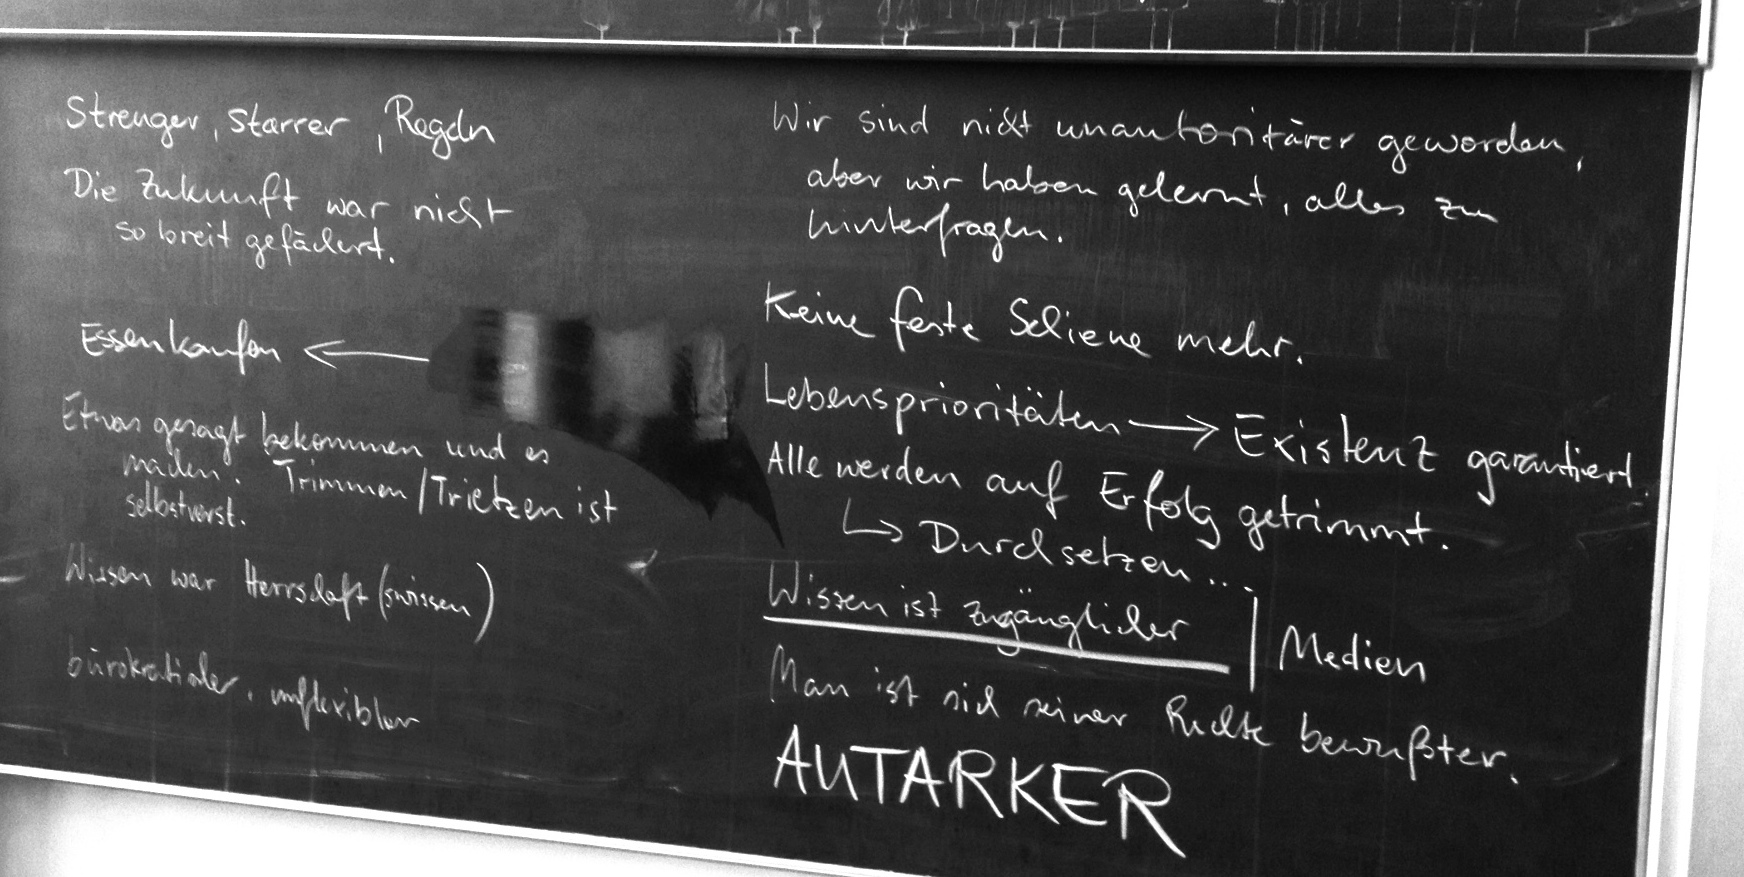 Strenger, starrer, Regeln
Die Zukunft war nicht
so breit gefächert.
Essen kaufen ←
Etwas gesagt bekommen und es
machen. Trimmen/Trietzen ist
selbstverst.
Wissen war Herrschaft
bürokratischer, unflexibler
Wir sind nicht unautoritärer geworden,
aber wir haben gelernt, alles zu
hinterfragen.
Keine feste Schiene mehr.
Lebensprioritäten → Existenz garantiert.
Alle werden auf Erfolg getrimmt.
↳ Durchsetzen...
Wissen ist zugänglicher
Medien
Man ist sich seiner Rechte bewußter.
AUTARKER